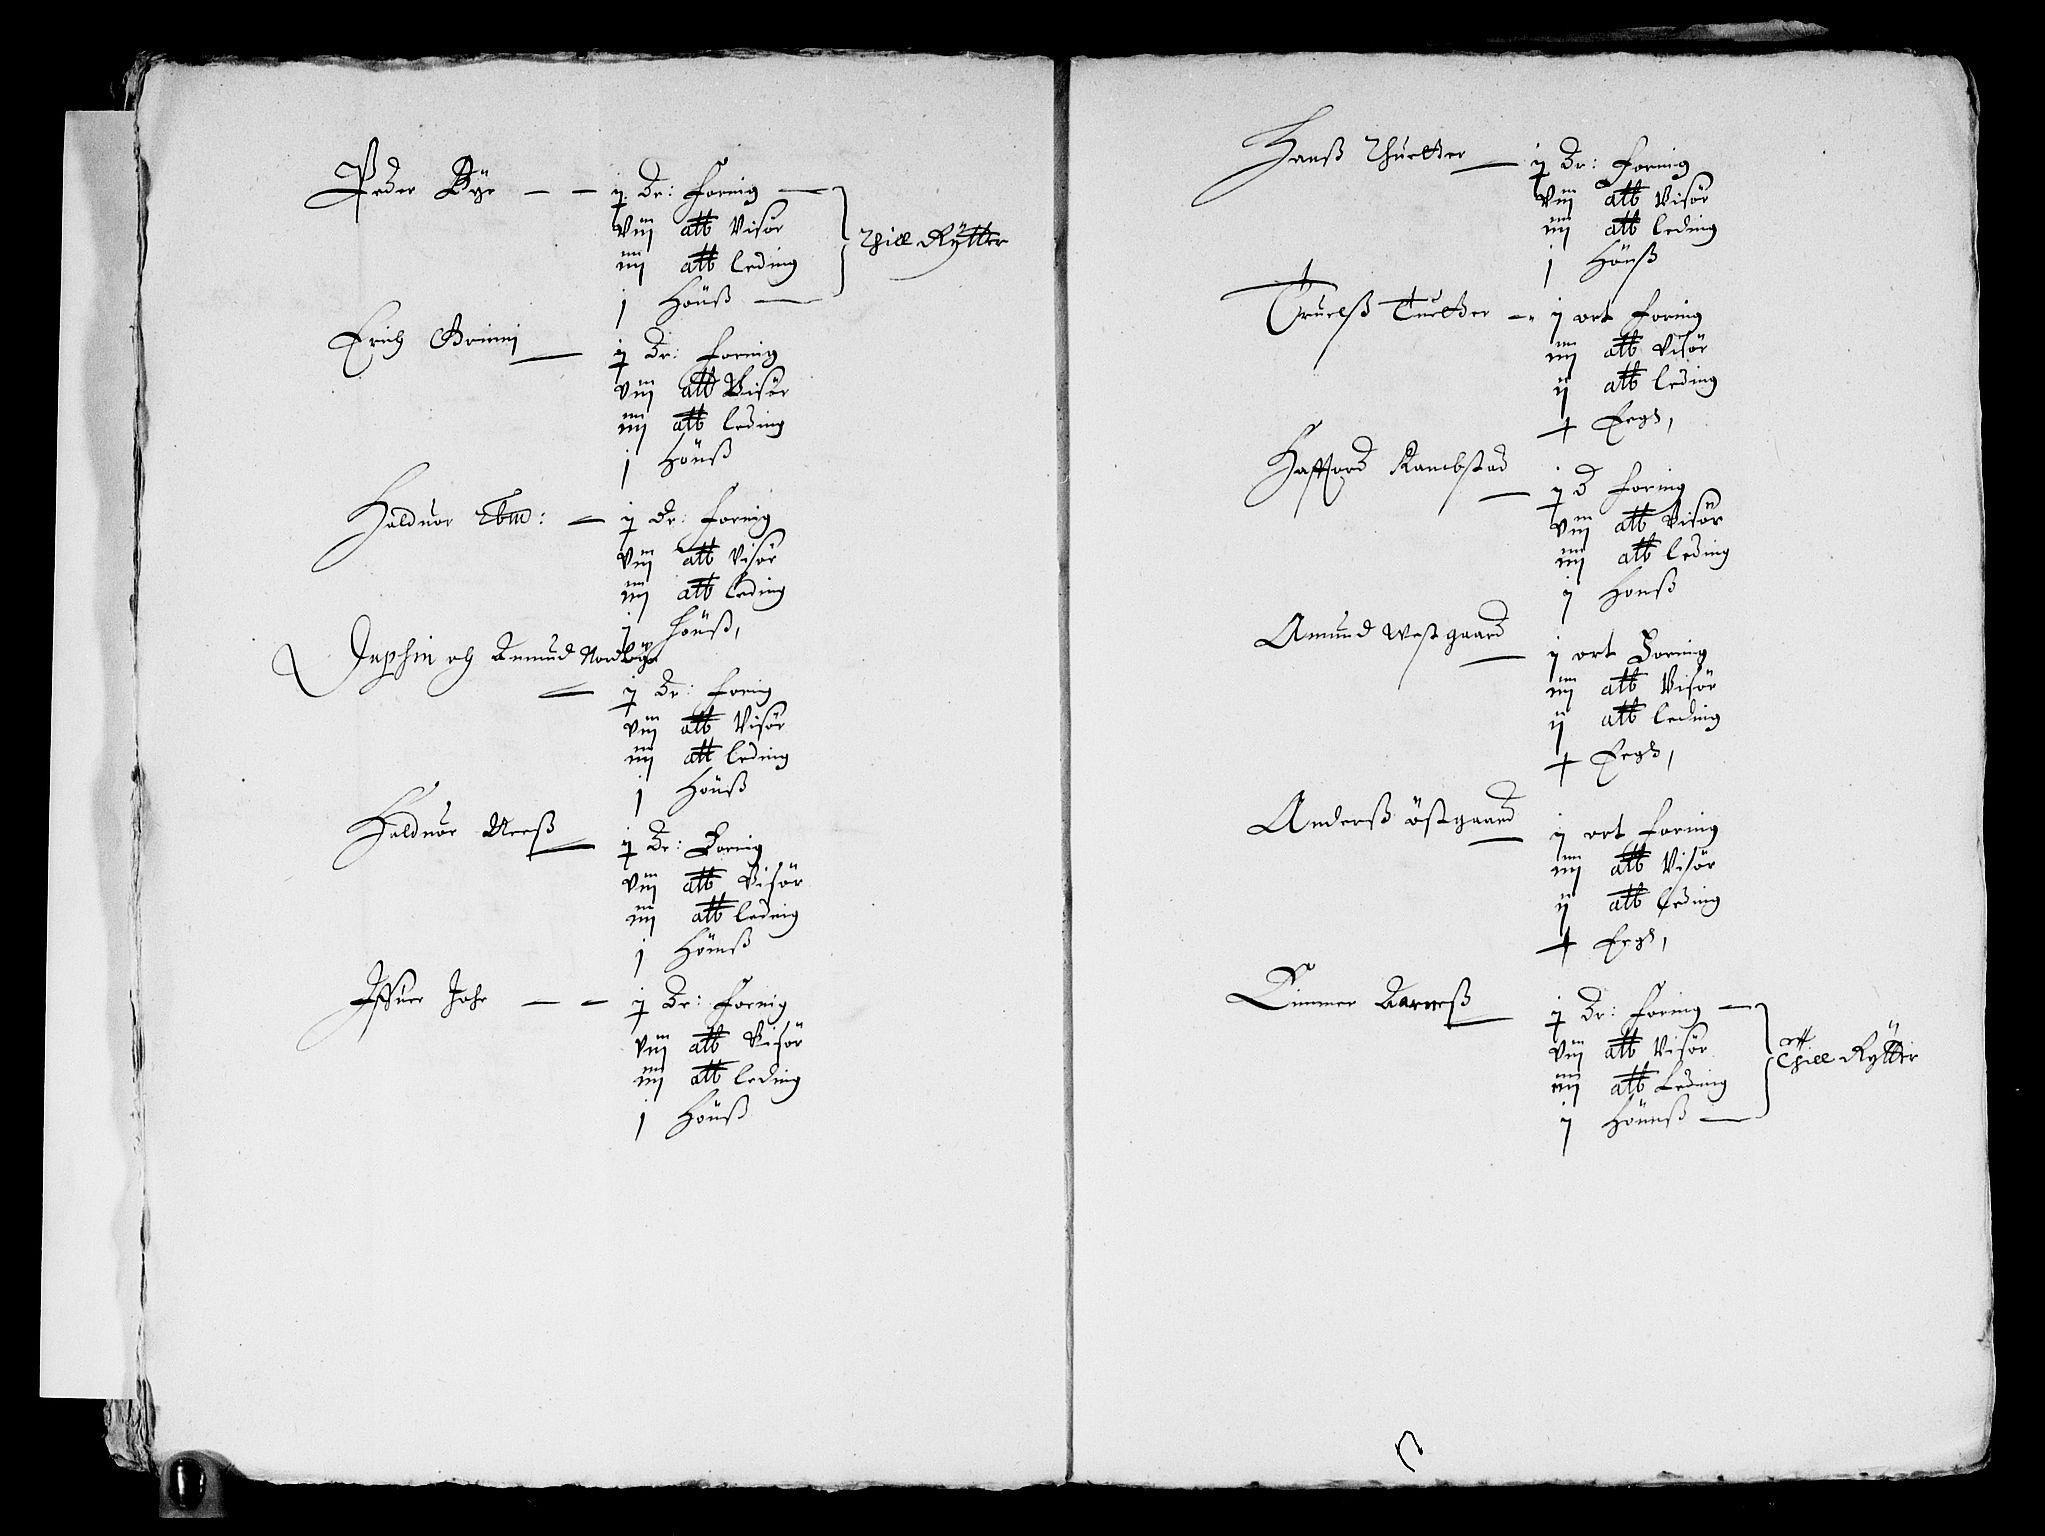 Peder Bÿe — — j Dr: foring —
viij att Visör
iiij att leding
j Höuß —
thill Rÿtter
Erich Grimi — j Dr: foring
viij att Visör
iiij att leding
j Höuß
Halduor — j Dr: foring
viij att Visör
iiij att leding
j Höuß,
och Amund Nordbÿe
— j Dr: foring
viij att Visör
iiij att leding
j Höuß
Halduor Neeß — j Dr: Foring
viij att Visör
iiij att leding
j Höuß
Iffuer Johr — — j Dr: Foring
viij att Visör
iiij att leding
j Höuß
Hanß Thuetter — j Dr: Foring
viij att Visör
iiij att leding
j Höuß
Truelß Tuetter — j ort foring
iiij att Visör
ij att leding
Haffuord Rambstad — j D foring
viij att Visör
iiij att leding
j Honß
Amund Westgaard — j ort Foring
iiij att Visör
ij att leding
Anderß östgaard — j ort foring
iiij att Visör
ij att leding
Gunner Aarneß — j Dr: foring —
viij att Visör
iiij att Leding
j Hönnß —
Thill Rÿtter